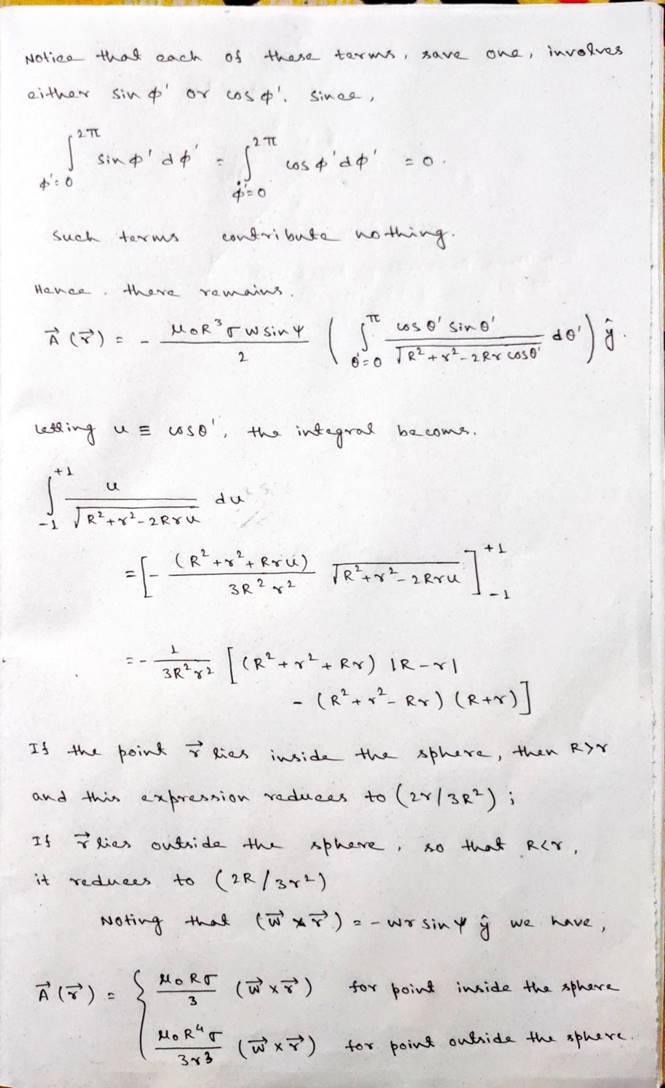 Notice that each of these terms, save one, involves
either sin φ' or cos φ'. Since,
∫_{φ'=0}^{2π} sin φ' dφ' = ∫_{φ'=0}^{2π} cos φ' dφ' = 0.
Such terms contribute nothing.
Hence. there remains.
A⃗(r⃗) = - μ₀R³σ w sin ψ / 2 ( ∫_{θ'=0}^{π} cos θ' sin θ' / √(R²+r²-2Rr cos θ') dθ' ) ŷ.
Letting u ≡ cos θ', the integral becoms.
∫_{-1}^{+1} u / √(R²+r²-2Rru) du
= [ - (R²+r²+Rru) / 3R²r² √(R²+r²-2Rru) ]_{-1}^{+1}
= - 1/3R²r² [ (R²+r²+Rr) |R-r|
- (R²+r²-Rr) (R+r) ]
If the point r⃗ lies inside the sphere, then R>r
and this expression reduces to (2r/3R²) ;
If r⃗ lies outside the sphere, so that R<r,
it reduces to (2R/3r²)
Noting that (w⃗ × r⃗) = - wr sin ψ ŷ we have,
A⃗(r⃗) = { μ₀Rσ/3 (w⃗×r⃗) for point inside the sphere
μ₀R⁴σ/3r³ (w⃗×r⃗) for point outside the sphere.